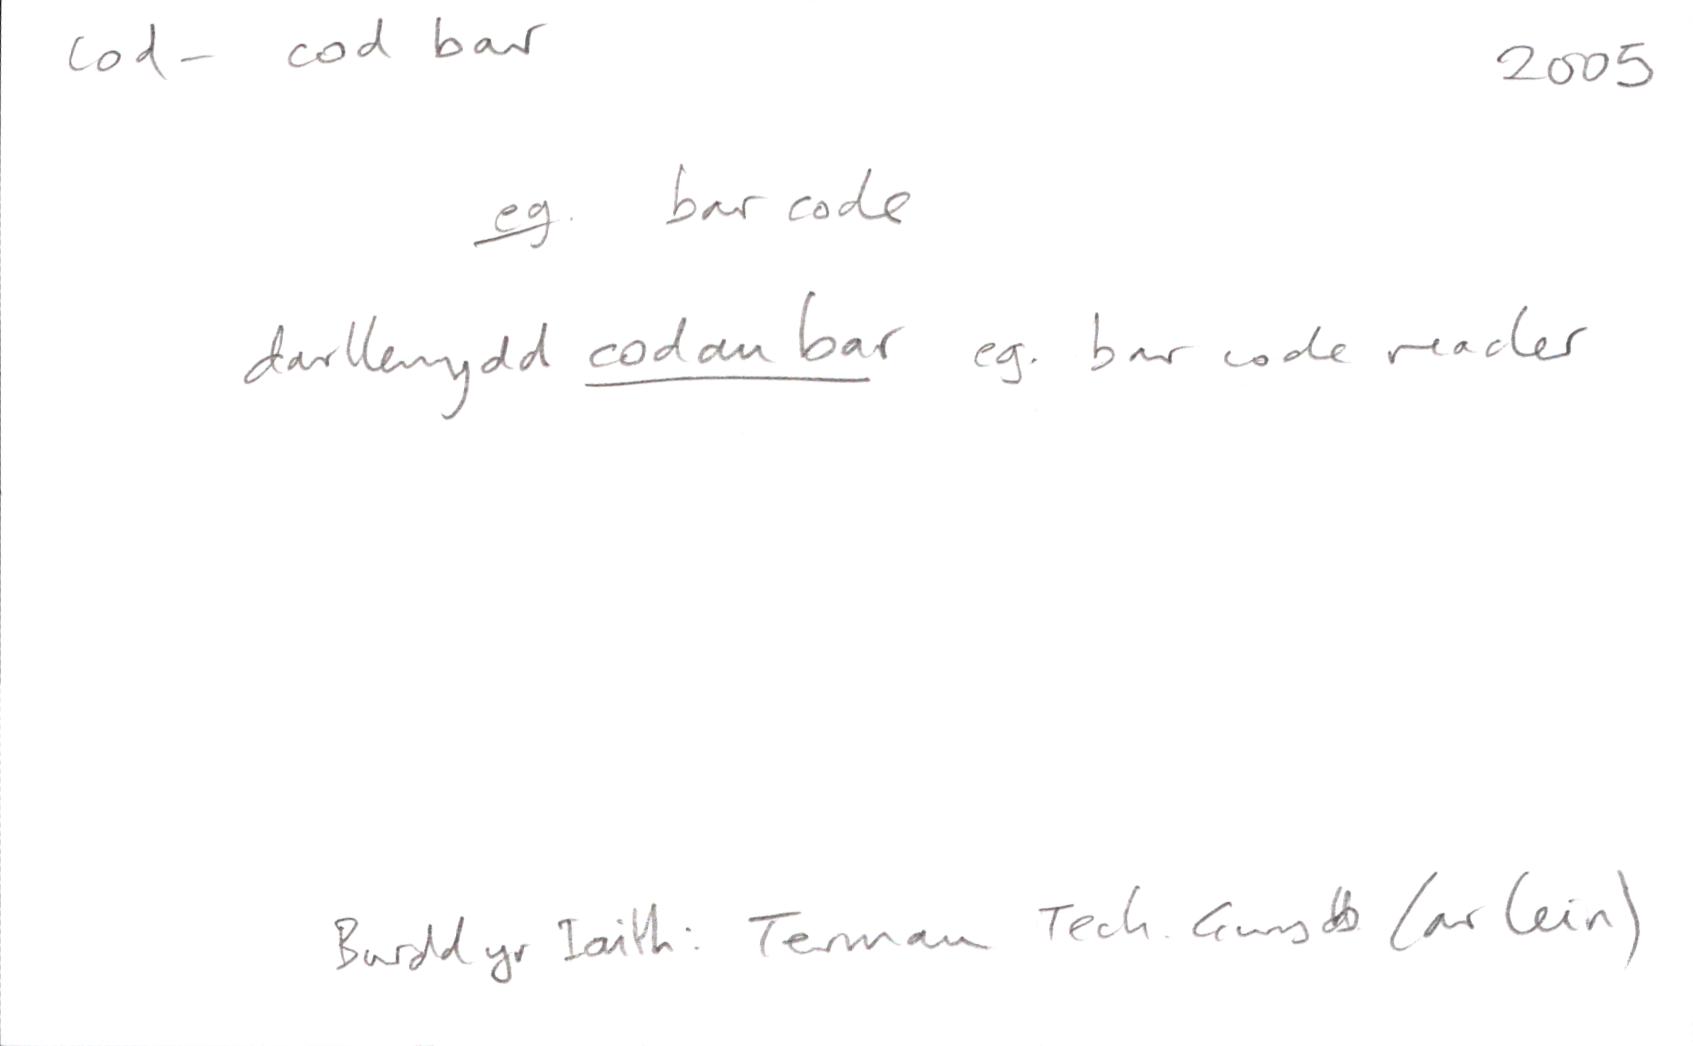 cod - cod bar 2005
eg. bar code
darllenydd codau bar eg. bar code reader
Bwrdd yr Iaith: Termau Tech. Gwyb (ar lein)